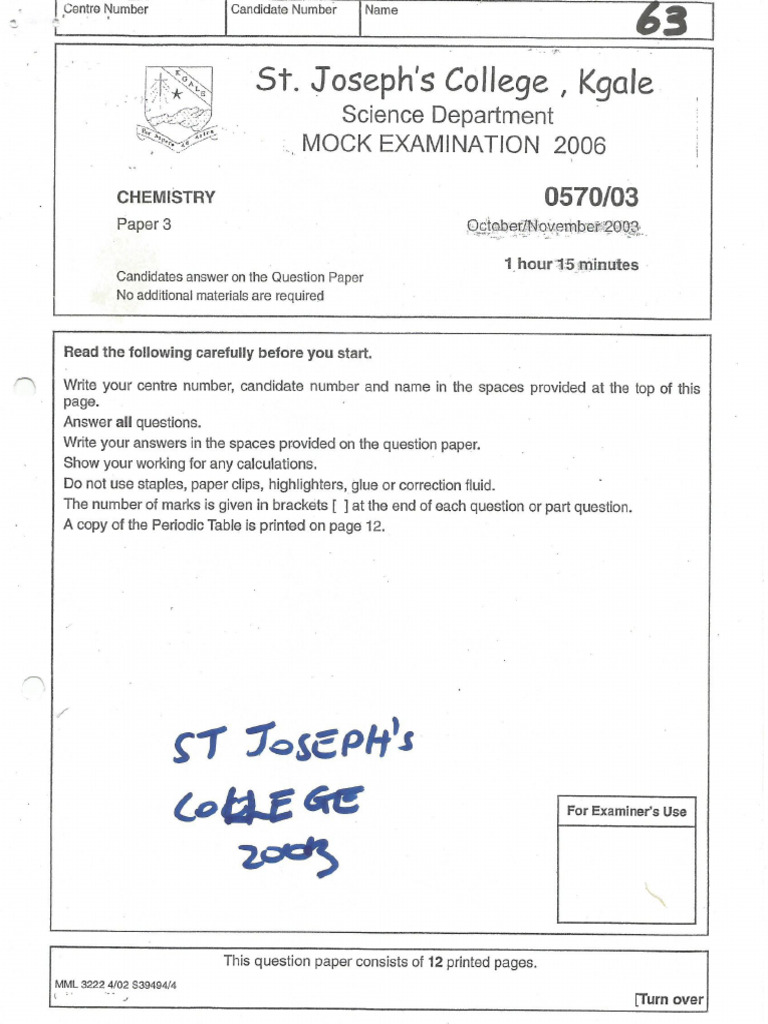 Centre Number Candidate Number Name 63
KGALE
St. Joseph's College , Kgale
Science Department
MOCK EXAMINATION 2006
CHEMISTRY 0570/03
Paper 3 October/November 2003
1 hour 15 minutes
Candidates answer on the Question Paper
No additional materials are required
Read the following carefully before you start.
Write your centre number, candidate number and name in the spaces provided at the top of this
page.
Answer all questions.
Write your answers in the spaces provided on the question paper.
Show your working for any calculations.
Do not use staples, paper clips, highlighters, glue or correction fluid.
The number of marks is given in brackets [ ] at the end of each question or part question.
A copy of the Periodic Table is printed on page 12.
ST JOSEPH's
COLLEGE
2003
For Examiner's Use
This question paper consists of 12 printed pages.
MML 3222 4/02 S39494/4
[Turn over